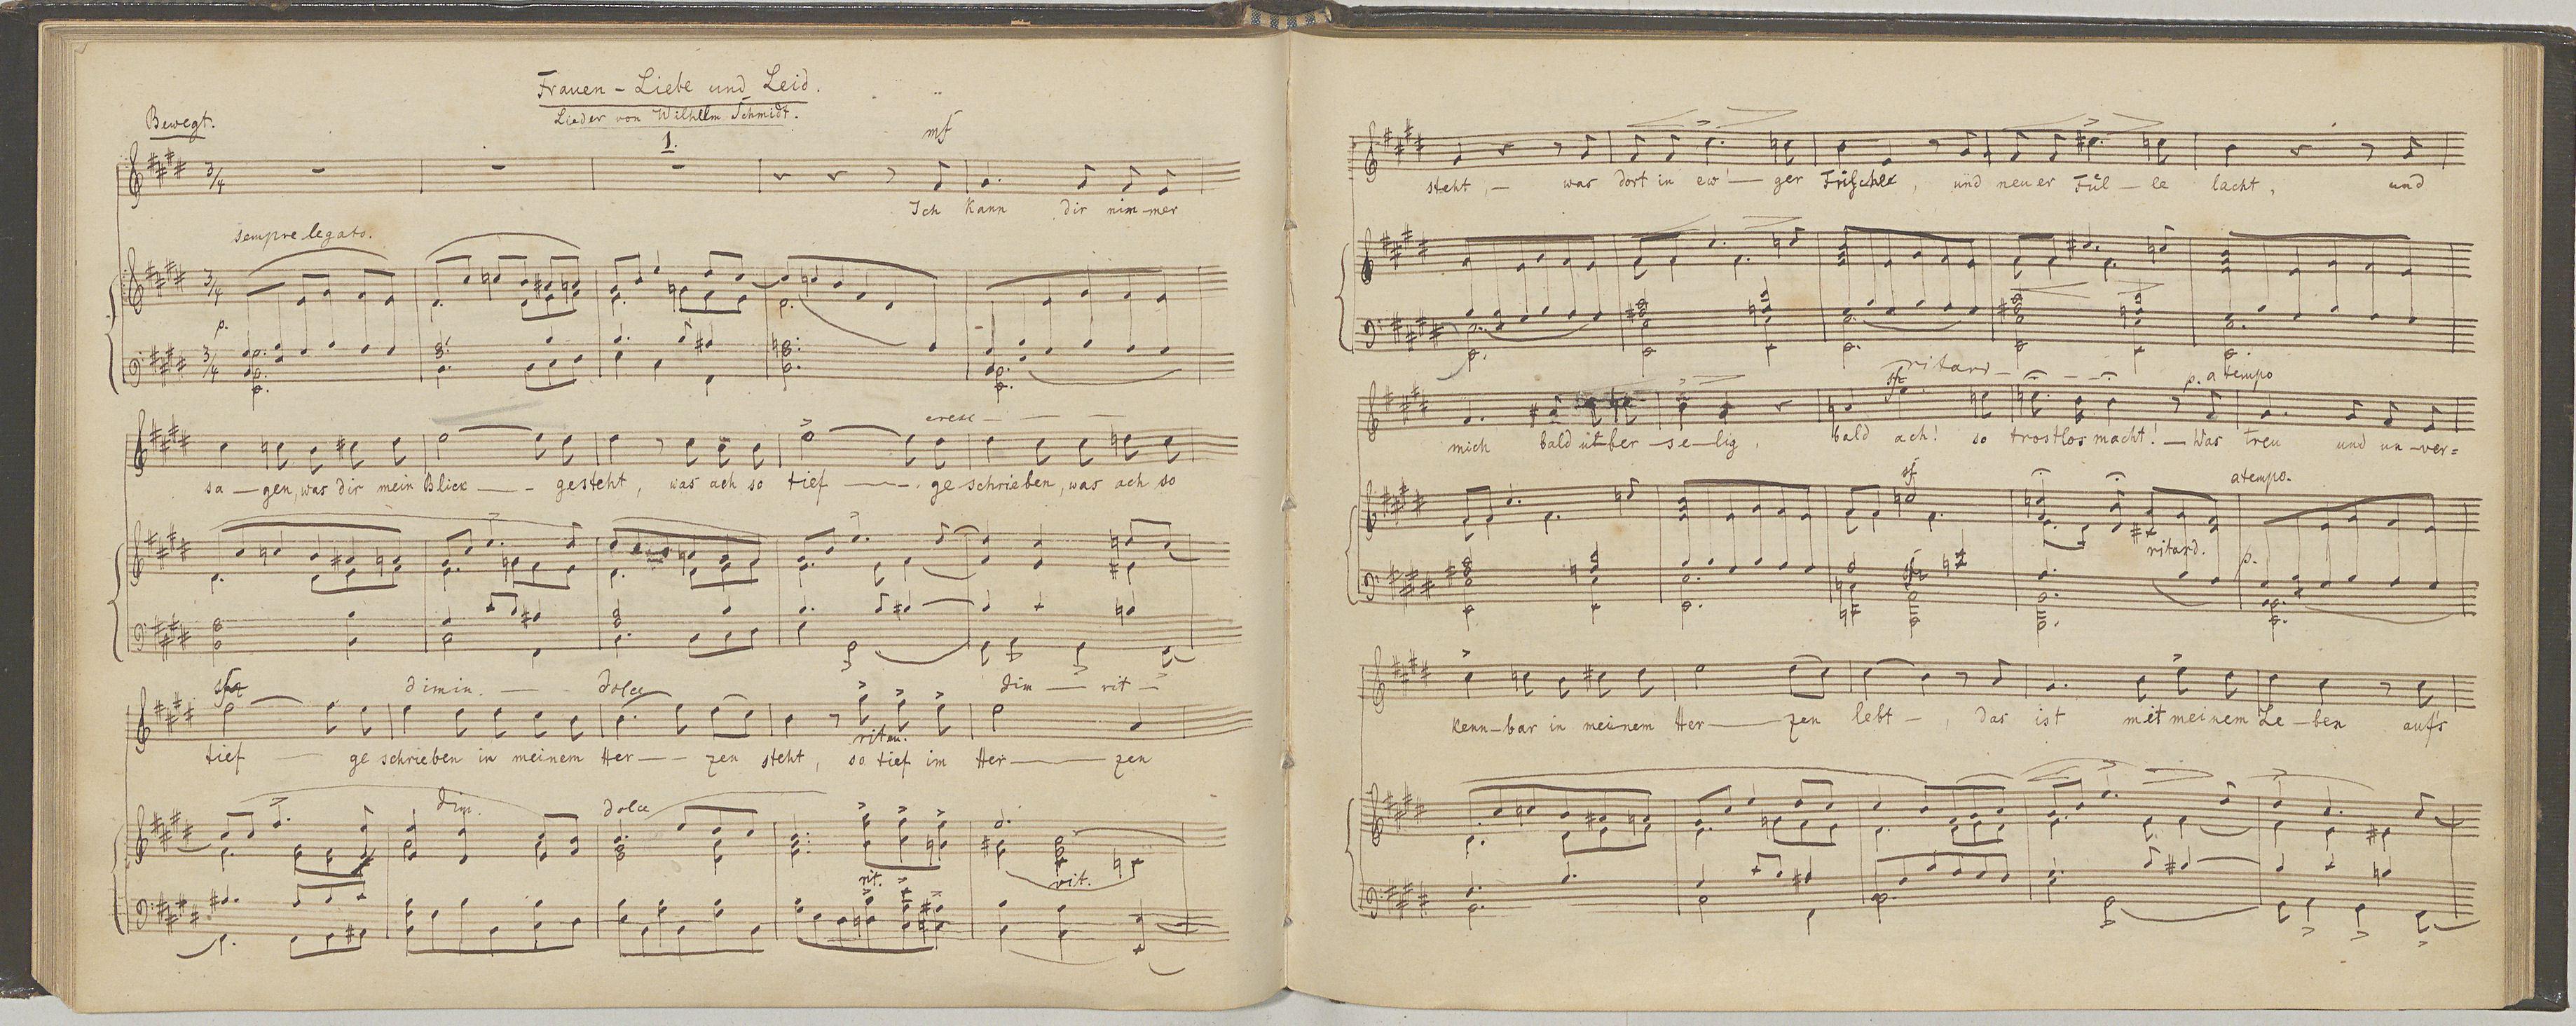 Frauen - Liebe und Leid.
Lieder von Wilhelm Schmidt.
Bewegt.
1.
mf
3/4
Ich kann dir nim-mer
sempre legato.
3/4
p.
3/4
cresc - — —
sa — gen, was dir mein Blick — - gesteht, was ach so tief — - ge schrieben, was ach so
dimin. — dolce dim — rit —
riten.
tief — ge schrieben in meinem Her — - zen steht, so tief im Her — zen
dim. dolce
rit. rit.
steht, — was dort in ew' — ger Frische, und neuer Fül — le lacht, und
ritard - - - -
sf p. a tempo
mich bald über - se - lig, bald ach! so trostlos macht! — Was treu und un - ver=
sf a tempo.
ritard. p.
sf
kenn - bar in meinem Her — zen lebt —, das ist mit meinem Le - ben auf's